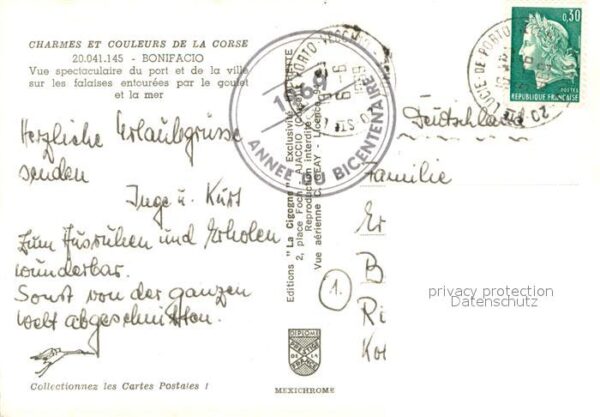 CHARMES ET COULEURS DE LA CORSE
20.041.145 - BONIFACIO
Vue spectaculaire du port et de la ville
sur les falaises entourées par le goulet
et la mer
Herzliche Urlaubsgrüsse
senden
Inge u. Kurt
Zum Ausruhen und Erholen
wunderbar.
Sonst von der ganzen
Welt abgeschnitten.
Collectionnez les Cartes Postales !
Editions "La Cigogne"
2, place Foch - AJACCIO
Reproduction interdite
Vue aérienne
1969
ANNÉE DU BICENTENAIRE
DIPLOME
PRESTIGE
DE LA
FRANCE
MEXICHROME
0,30
REPUBLIQUE FRANÇAISE
Deutschland
Familie
Er
B
Ri
Kor
1.
privacy protection
Datenschutz